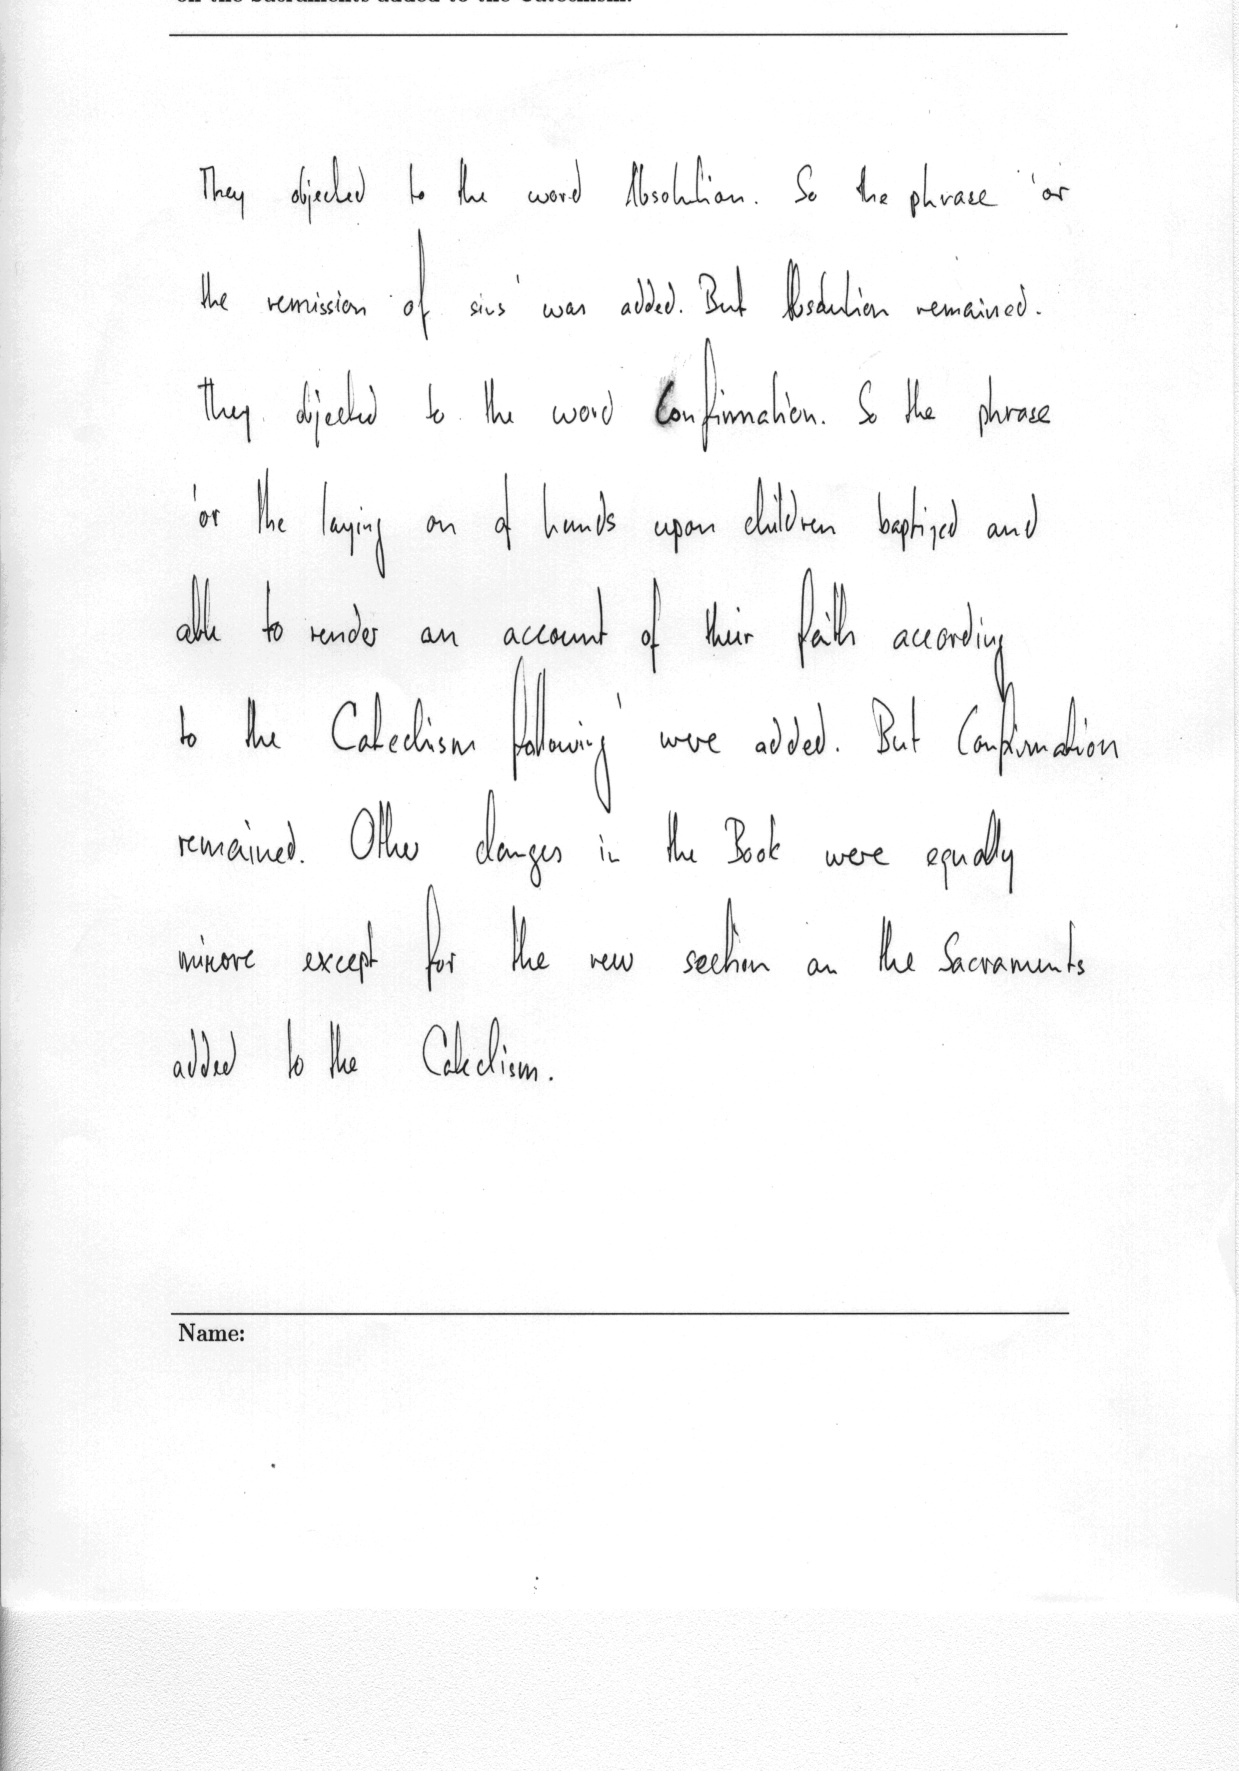 on the Sacraments added to the Catechism.
They objected to the word Absolution. So the phrase 'or
the remission of sins' was added. But Absolution remained.
They objected to the word Confirmation. So the phrase
'or the laying on of hands upon children baptized and
able to render an account of their faith according
to the Catechism following' were added. But Confirmation
remained. Other changes in the Book were equally
minore except for the new section on the Sacraments
added to the Catechism.
Name: